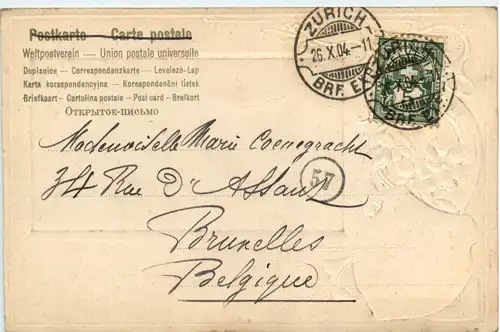 Postkarte — Carte postale
Weltpostverein — Union postale universelle
Dopisnice — Correspondenzkarte — Levelező-Lap
Karta korespondencyjna — Korespondenční lístek
Briefkaart — Cartolina postale — Post card — Brefkort
ОТКРЫТОЕ-ПИСЬМО
ZÜRICH
26.X.04.-11
BRF. EXP.
Mademoiselle Marie Coenegracht
34 Rue D'Assaut
57
Bruxelles
Belgique